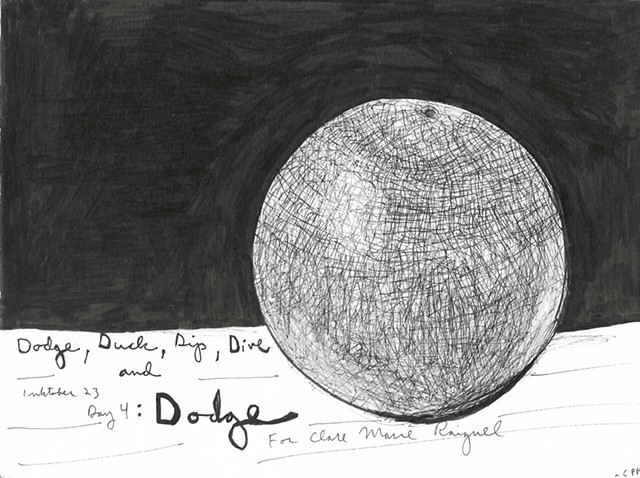 Dodge, Duck, Dip, Dive
and
Inktober 23
Day 4: Dodge
For Clare Marie